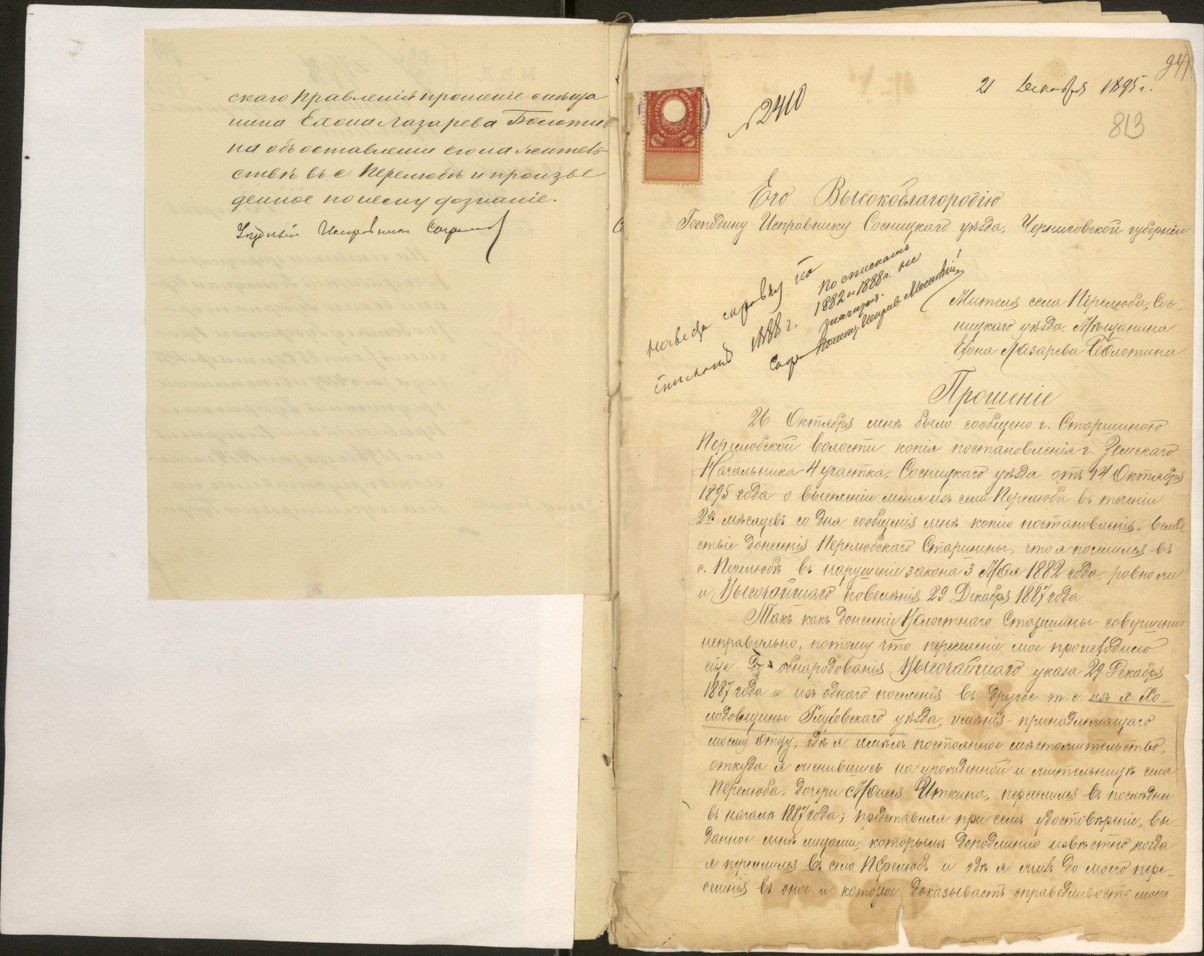 скаго Правленія прошеніе мѣща
нина Елона Лазарева Болотин
на объ оставленіи его на житель
ствѣ въ с. Перелюбѣ и произве
денное по нему дознаніе.
Уѣздный Исправникъ
94
21 Декабря 1895 г.
813
№ 2410
Его Высокоблагородію
Господину Исправнику Сосницкаго уѣзда, Черниговской губерніи
Жителя села Перелюба, Сос-
ницкаго уѣзда, Мѣщанина
Елона Лазарева Болотина
навести справку по
спискамъ 1888 г.
По спискамъ
1882 и 1888 г. не
значится.
Прошеніе
26 Октября мнѣ было сообщено г. Старшиною
Перелюбской волости копія постановленія г. Земскаго
Начальника 4 участка, Сосницкаго уѣзда отъ 14 Октября
1895 года о выселеніи меня изъ села Перелюба въ теченіи
2хъ мѣсяцевъ со дня сообщенія мнѣ копіи постановленія, вслѣд
ствіе донесенія Перелюбскаго Старшины, что я поселился въ
с. Перелюбѣ въ нарушеніе закона 3 Мая 1882 года, ровно
и Высочайшаго повелѣнія 29 Декабря 1887 года.
Такъ какъ донесеніе Волостнаго Старшины совершенно
неправильно, потому что переселеніе мое происходило
еще до обнародованія Высочайшаго указа 29 Декабря
1887 года и изъ однаго поселенія въ другое т. е. изъ х. Хо-
лодовщины Глуховскаго уѣзда, имѣнія принадлежащаго
моему отцу, гдѣ я имѣлъ постоянное мѣстожительство,
откуда я женившись на урожденной и жительницѣ села
Перелюба, дочери Мовши Иткина, переселился въ послѣднее
въ началѣ 1887 года; представляя при семъ удостовѣреніе, вы-
данное мнѣ лицами, которымъ доподлинно извѣстно, когда
я переселился въ село Перелюбъ и гдѣ я жилъ до моего пере-
селенія въ оное и которое доказываетъ справедливость моего